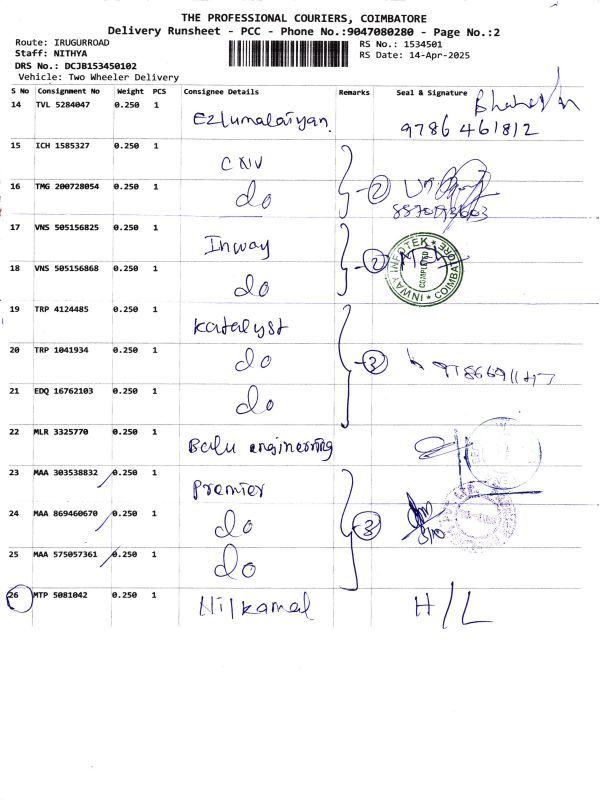 THE PROFESSIONAL COURIERS, COIMBATORE
Delivery Runsheet - PCC - Phone No.:9047080280 - Page No.:2
Route: IRUGURROAD
Staff: NITHYA
DRS No.: DCJB153450102
Vehicle: Two Wheeler Delivery
RS No.: 1534501
RS Date: 14-Apr-2025
S No Consignment No Weight PCS Consignee Details Remarks Seal & Signature
14 TVL 5284047 0.250 1 Ezlumalaiyan. 9786 461812
15 ICH 1585327 0.250 1
16 TMG 200728054 0.250 1 do 2
17 VNS 505156825 0.250 1 Inway
18 VNS 505156868 0.250 1 do 2 INWAY INFOTEK COIMBATORE COMPLETED
19 TRP 4124485 0.250 1 Katalyst
20 TRP 1041934 0.250 1 do 3
21 EDQ 16762103 0.250 1 do
22 MLR 3325770 0.250 1 Balu engineering
23 MAA 303538832 0.250 1 Premier
24 MAA 869460670 0.250 1 do 3
25 MAA 575057361 0.250 1 do
26 MTP 5081042 0.250 1 Nilkamal H/L